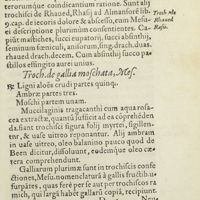 terorumque coindicantium ratione. Sunt alij
trochisci de Rhaued, Rhasij ad Almansoré lib.
9. cap. de iecoris dolore & abscesso, cum Mesu-
ei descriptione plurimum consentientes. Ca-
pissis malthes, succi eupatorij, succi absinthij,
seminum fœniculi, anisorum, sing. drach. duas.
rhaued drach. decem. Cum absinthij succo pa-
stillos effingito aurei unius.
Troch. de
Rhaued
Rasis.
Troch. de gallia moschata, Mes.
℞ Ligni aloës crudi partes quinq;.
Ambræ partes tres.
Moschi partem unam.
Mucilaginis tragacanthi cum aqua rosa-
cea extractæ, quantũ sufficit ad ea cõprehẽden
da. fiant trochisci figura folij myrtei, sigillen-
tur, & uase uitreo reponantur. Alij ambram
in uase uitreo, oleo balanino pauco quod de
Been dicitur, dissoluunt, eodemque oleo cæ-
tera comprehendunt.
Galliarum plurimæ sunt in trochiscis confe-
ctiones, Mesu. nomenclaturā à gallis fructibus
furpátes, quas ferè per se aut per trochiscos ra
mich, qui largã habét gallarũ copiã, recipiunt.